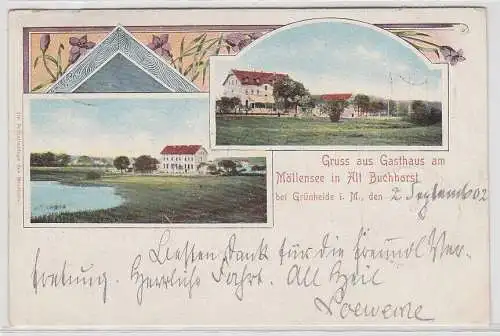 Gruss aus Gasthaus am
Möllensee in Alt Buchhorst
bei Grünheide i. M., den 2 September 02
Besten Dank für die freundl Ver-
tretung. Herrliche Fahrt. All Heil
Loewene